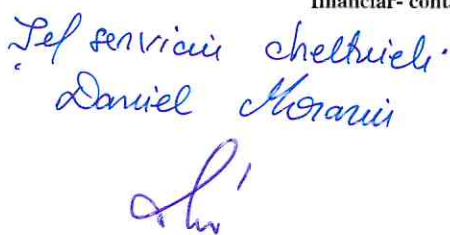 financiar- cont
Șef serviciu cheltuieli
Daniel Moraru